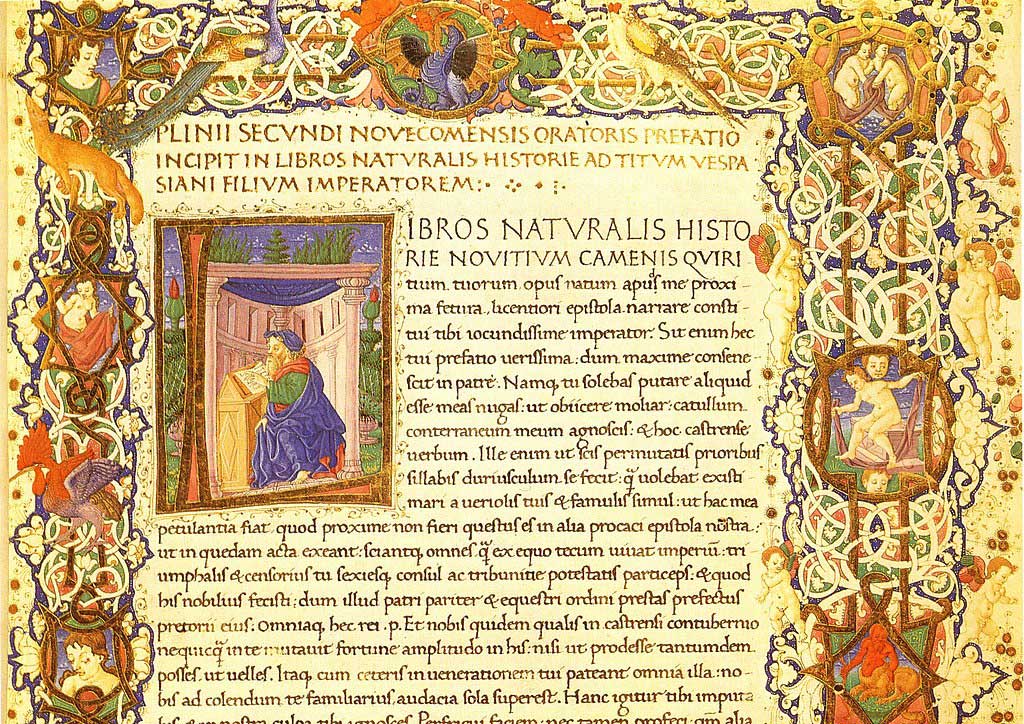 PLINII SECVNDI NOVECOMENSIS ORATORIS PREFATIO
INCIPIT IN LIBROS NATVRALIS HISTORIE AD TITVM VESPA
SIANI FILIVM IMPERATOREM:·
LIBROS NATVRALIS HISTO
RIE NOVITIVM CAMENIS QVIRI
tium. tuorum. opus natum apus me proxi-
ma fetura. licentiori epistola narrare consti-
tui tibi iocundissime imperator. Sit enim hec
tui prefatio uerissima: dum maxime consene-
scit in patrē. Namq; tu solebas putare aliquid
esse meas nugas: ut obiicere moliar: catullum
conterraneum meum agnoscis: & hoc castrense
uerbum. Ille enim ut scis permutatis prioribus
sillabis duriusculum se fecit: q̄ uolebat existi
mari a ueriolis tuis & famulis simul: ut hac mea
petulantia fiat. quod proxime non fieri questus es in alia procaci epistola nōstra:
ut in quedam acta exeant: sciantq; omnes. q̄ ex equo tecum uiuat imperiū: tri-
umphalis & censorius tu sexiesq; consul ac tribunitie potestatis particeps: & quod
his nobilius fecisti: dum illud patri pariter & equestri ordini prestas prefectus
pretorii eius: omniaq; hec rei .p. Et nobis quidem qualis in castrensi contubernio
nequicq̄ in te mutauit fortune amplitudo in his: nisi ut prodesse tantumdem
posses. ut uelles. Itaq; cum ceteris in uenerationem tui pateant omnia illa: no-
bis ad colendum te familiarius, audacia sola superest. Hanc igitur tibi imputa
bis & in nostra culpa tibi ignosces. Perfricui faciem: nec tamen profeci: qm̄ alia